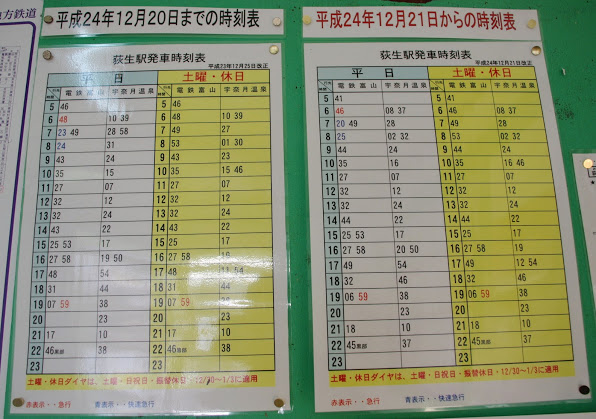 方鉄道
平成24年12月20日までの時刻表
荻生駅発車時刻表
平成23年12月25日改正
平日 土曜・休日
電鉄富山 宇奈月温泉 電鉄富山 宇奈月温泉
5 46 5 46
6 48 10 39 6 48 10 39
7 23 49 28 58 7 49 27
8 24 31 8 53 01 30
9 43 24 9 43 23
10 35 15 10 35 15 46
11 27 07 11 27 12
12 32 12 12 32 12
13 32 24 13 32 24
14 44 22 14 43 22
15 25 53 17 15 25 17
16 27 58 19 50 16 27 58 19
17 48 54 17 48 11 54
18 31 44 18 31 44
19 07 59 38 19 07 59 38
20 20
21 17 10 21 17 10
22 46黒部 38 22 46黒部 38
23 23
土曜・休日ダイヤは、土曜・日祝日・振替休日・12/30〜1/3に適用
赤表示・・急行 青表示・・快速急行
平成24年12月21日からの時刻表
荻生駅発車時刻表
平成24年12月21日改正
平日 土曜・休日
電鉄富山 宇奈月温泉 電鉄富山 宇奈月温泉
5 41 5 41
6 46 08 37 6 46 08 37
7 20 49 28 7 49 28
8 25 02 32 8 53 02 32
9 44 24 9 44 24
10 35 16 10 35 16 46
11 27 07 11 27 07
12 32 12 12 32 12
13 32 24 13 32 24
14 44 22 14 44 22
15 25 53 17 15 25 17
16 27 58 20 50 16 27 58 19
17 49 54 17 49 12 54
18 32 44 18 32 44
19 06 59 38 19 06 59 38
20 20
21 18 10 21 18 10
22 45黒部 37 22 45黒部 37
23 23
土曜・休日ダイヤは、土曜・日祝日・振替休日・12/30〜1/3に適用
赤表示・・急行 青表示・・快速急行